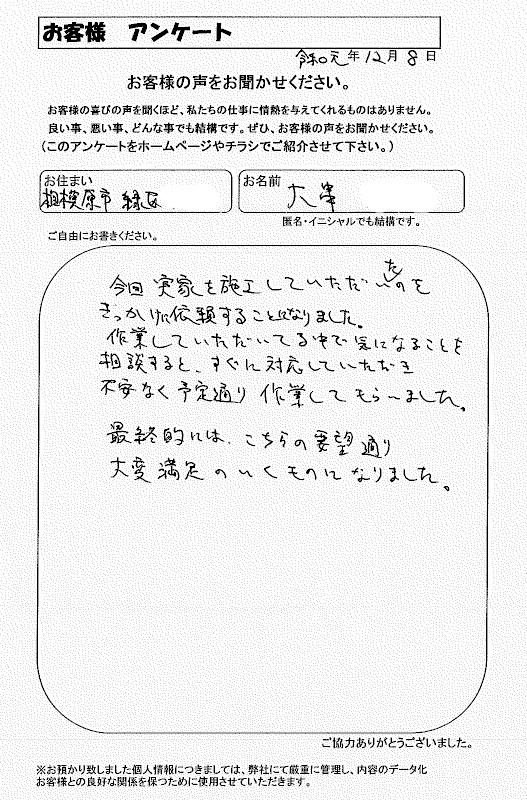 お客様 アンケート
令和元年12月8日
お客様の声をお聞かせください。
お客様の喜びの声を聞くほど、私たちの仕事に情熱を与えてくれるものはありません。
良い事、悪い事、どんな事でも結構です。ぜひ、お客様の声をお聞かせください。
(このアンケートをホームページやチラシでご紹介させて下さい。)
お住まい
相模原市 緑区
お名前
大串
匿名・イニシャルでも結構です。
ご自由にお書きください。
今回 実家を施工していただいたのを
きっかけに依頼することになりました。
作業していただいてる中で気になることを
相談すると、すぐに対応していただき
不安なく予定通り作業してもらいました。
最終的には、こちらの要望通り
大変満足のいくものになりました。
ご協力ありがとうございました。
※お預かり致しました個人情報につきましては、弊社にて厳重に管理し、内容のデータ化
お客様との良好な関係を保つために使用させていただきます。